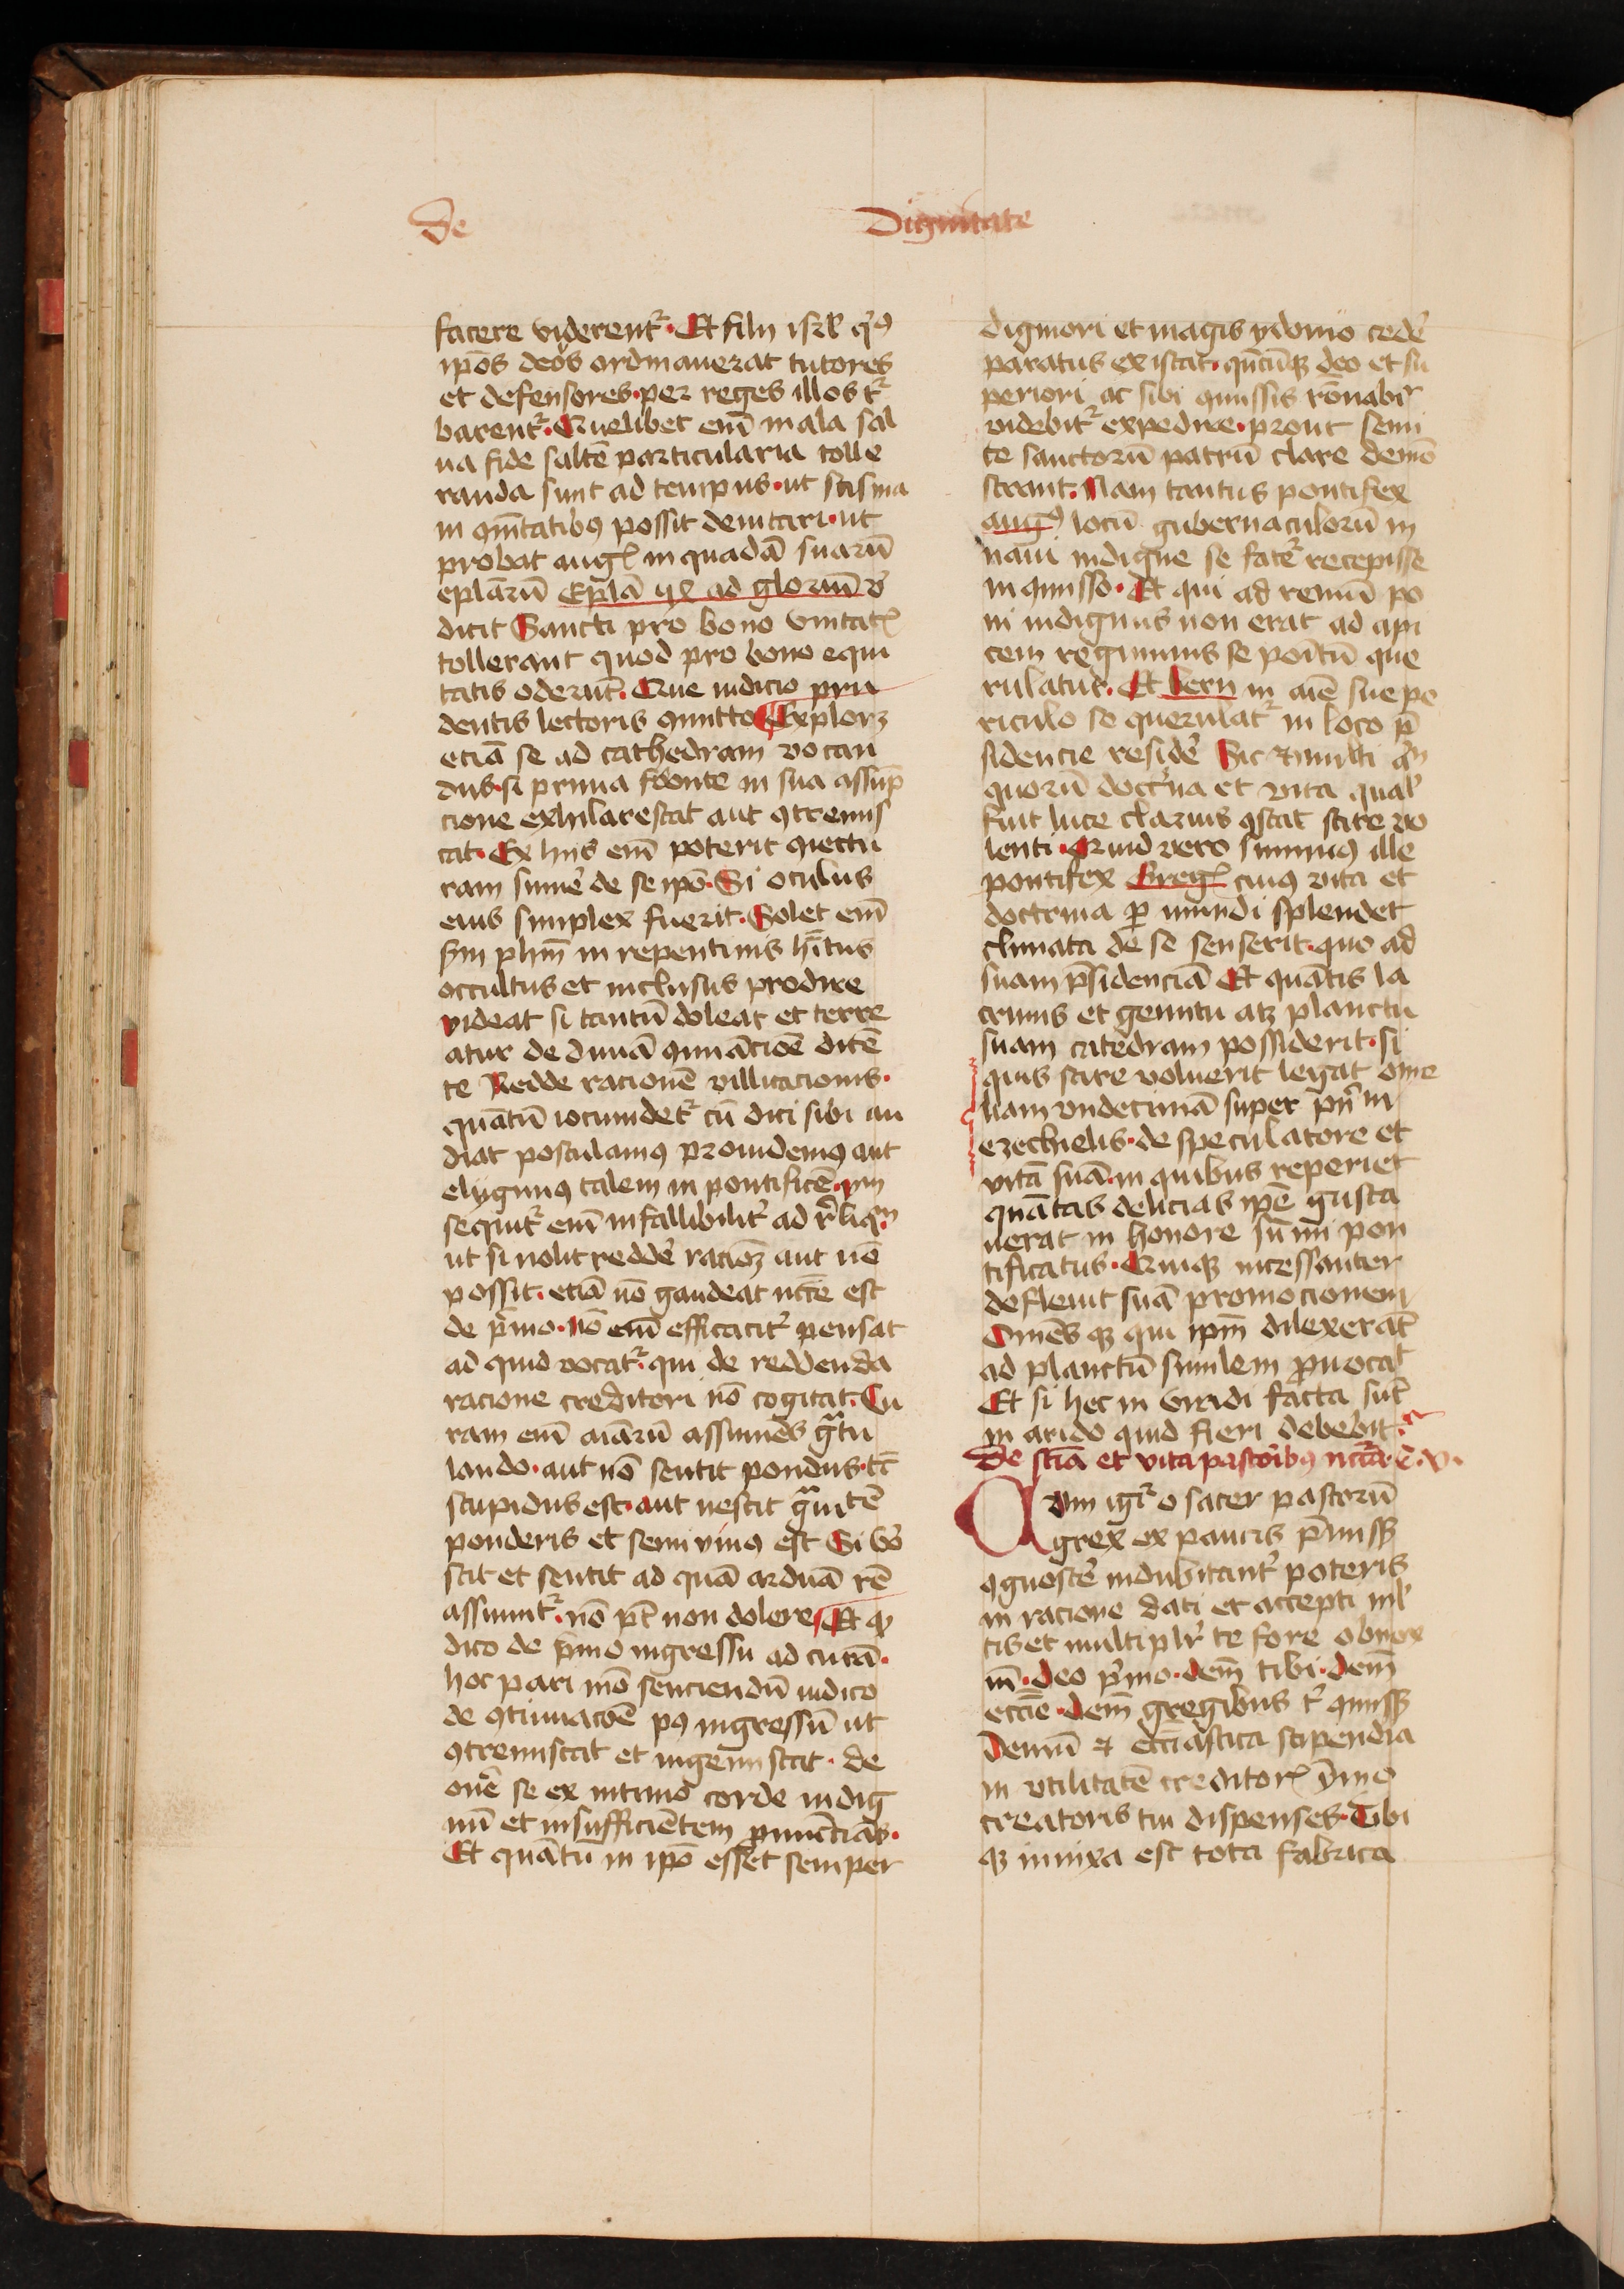 De Dignitate
facere viderent᷑. Et filii isrl' qꝰ
ipōs deos ordinauerat tutores
et defensores. per reges illos t᷑
barent᷑. Quelibet em̄ mala sal
ua fide saltē particularia tolle
randa sunt ad tempus. ut scisma
in ꝯmītatibꝰ possit deuitari. ut
probat aug in quadā suarū
eplārū Eplā ad gloriū
dicit Sancti pro bono vnitat
tollerant quod pro bono equi
tatis oderūt. Que iudicio pru
dentis lectoris ꝯmitto Explorꝫ
etiā se ad cathedram vocan
dus. si prima fronte in sua assūp
cione exhilarescat aut ꝯtremis
cat. Ex hiis em̄ poterit ꝯiectu
ram sumē de se ipō. Si oculus
eius simplex fuerit. Solet em̄
scdm phm̄ in repentinis hītus
occultus et inclusus prodire
videat si tantū doleat et terre
atur de diuiā ꝯmīacioē dicē
te Redde racionē villicacionis.
quātū iocundet᷑ cū dici sibi au
diat postulamꝰ prouidemꝰ aut
elygimꝰ talem in pontificē.
sequit᷑ em̄ infallibilit᷑ ad
ut si nolit reddē racioꝫ aut nō
possit. etiā nō gaudeat
de p̄mo. Nō em̄ efficacit᷑ pensat
ad quid vocat᷑. qui de reddenda
racione creditori nō cogitat. Cu
ram em̄ aiārū assumēs gᵃtu
lando. aut nō sentit pondus.
stupidus est. aut nescit gᵃuitē
ponderis et semiuiuꝰ est Si vō
scit et sentit ad quā arduā rē
assumit᷑. nō pt̄ non dolere Et qd
dico de p̄mo ingressu ad curā.
hoc pari mō senciendū iudico
de ꝯtinuacōē pꝰ ingressū ut
ꝯtremiscat et ingemiscat. de
onē se ex intimo corde indig
nū et insufficiētem ꝓnūctiās.
Et quātū in ipō esset semper
digniori et magis ydonio cedē
paratus existat. qn̄cūqꝫ deo et su
periori ac sibi ꝯmissis rōnabilr
videbit᷑ expedire. prout semi
te sanctorū patrū clare demō
strant. Nam tantus pontifex
augꝰ locū gubernaculorū in
naui indigne se fatē recepisse
in ꝯmisso. Et qui ad remū po
ni indignus non erat ad api
cem regiminis se poītū que
rulatur. Et bern in aīe sue pe
riculo se querulat᷑ in loco p̄
sidencie residē Sic et multi
quorū doctⁱna et vita qual
fuit luce clarius ꝯstat scire vo
lenti. Quid vero summꝰ ille
pontifex Greg cuiꝰ vita et
doctrina ꝑ mundi splendet
climata de se senserit. quo ad
suam p̄sidenciā Et quātis la
crimis et gemitu atꝫ planctu
suam catedram possiderit. si
quis scire voluerit legat ome
liam vndecimā super
ezechielis. de speculatore et
vitā suā. in quibus reperiet
quātas delicias ipē gusta
uerat in honore sūmi pon
tificatus. Quiqꝫ incessanter
defleuit suā promocionem
Omēs qꝫ qui ipm̄ dilexerāt
ad planctū similem ꝓuocat
Et si hec in viridi facta sūt
in arido quid fieri debebit.
De scīa et vita pastoribꝰ nccāria c̄. v.
Cum igit᷑ o sacer pastorū
grex ex paucis p̄missꝭ
ꝯgnoscē indubitant᷑ poteris
in racione dati et accepti ml'
tis et multiplr te fore obnox
iū. Deo p̄mo. dem̄ tibi. dem̄
eccīe. dem̄ gregibus t᷑ ꝯmissꝭ
Demū et eccīastica stipendia
in vtilitatē creditoꝝ ymo
creatoris tui dispenses. Tibi
qꝫ innixa est tota fabrica